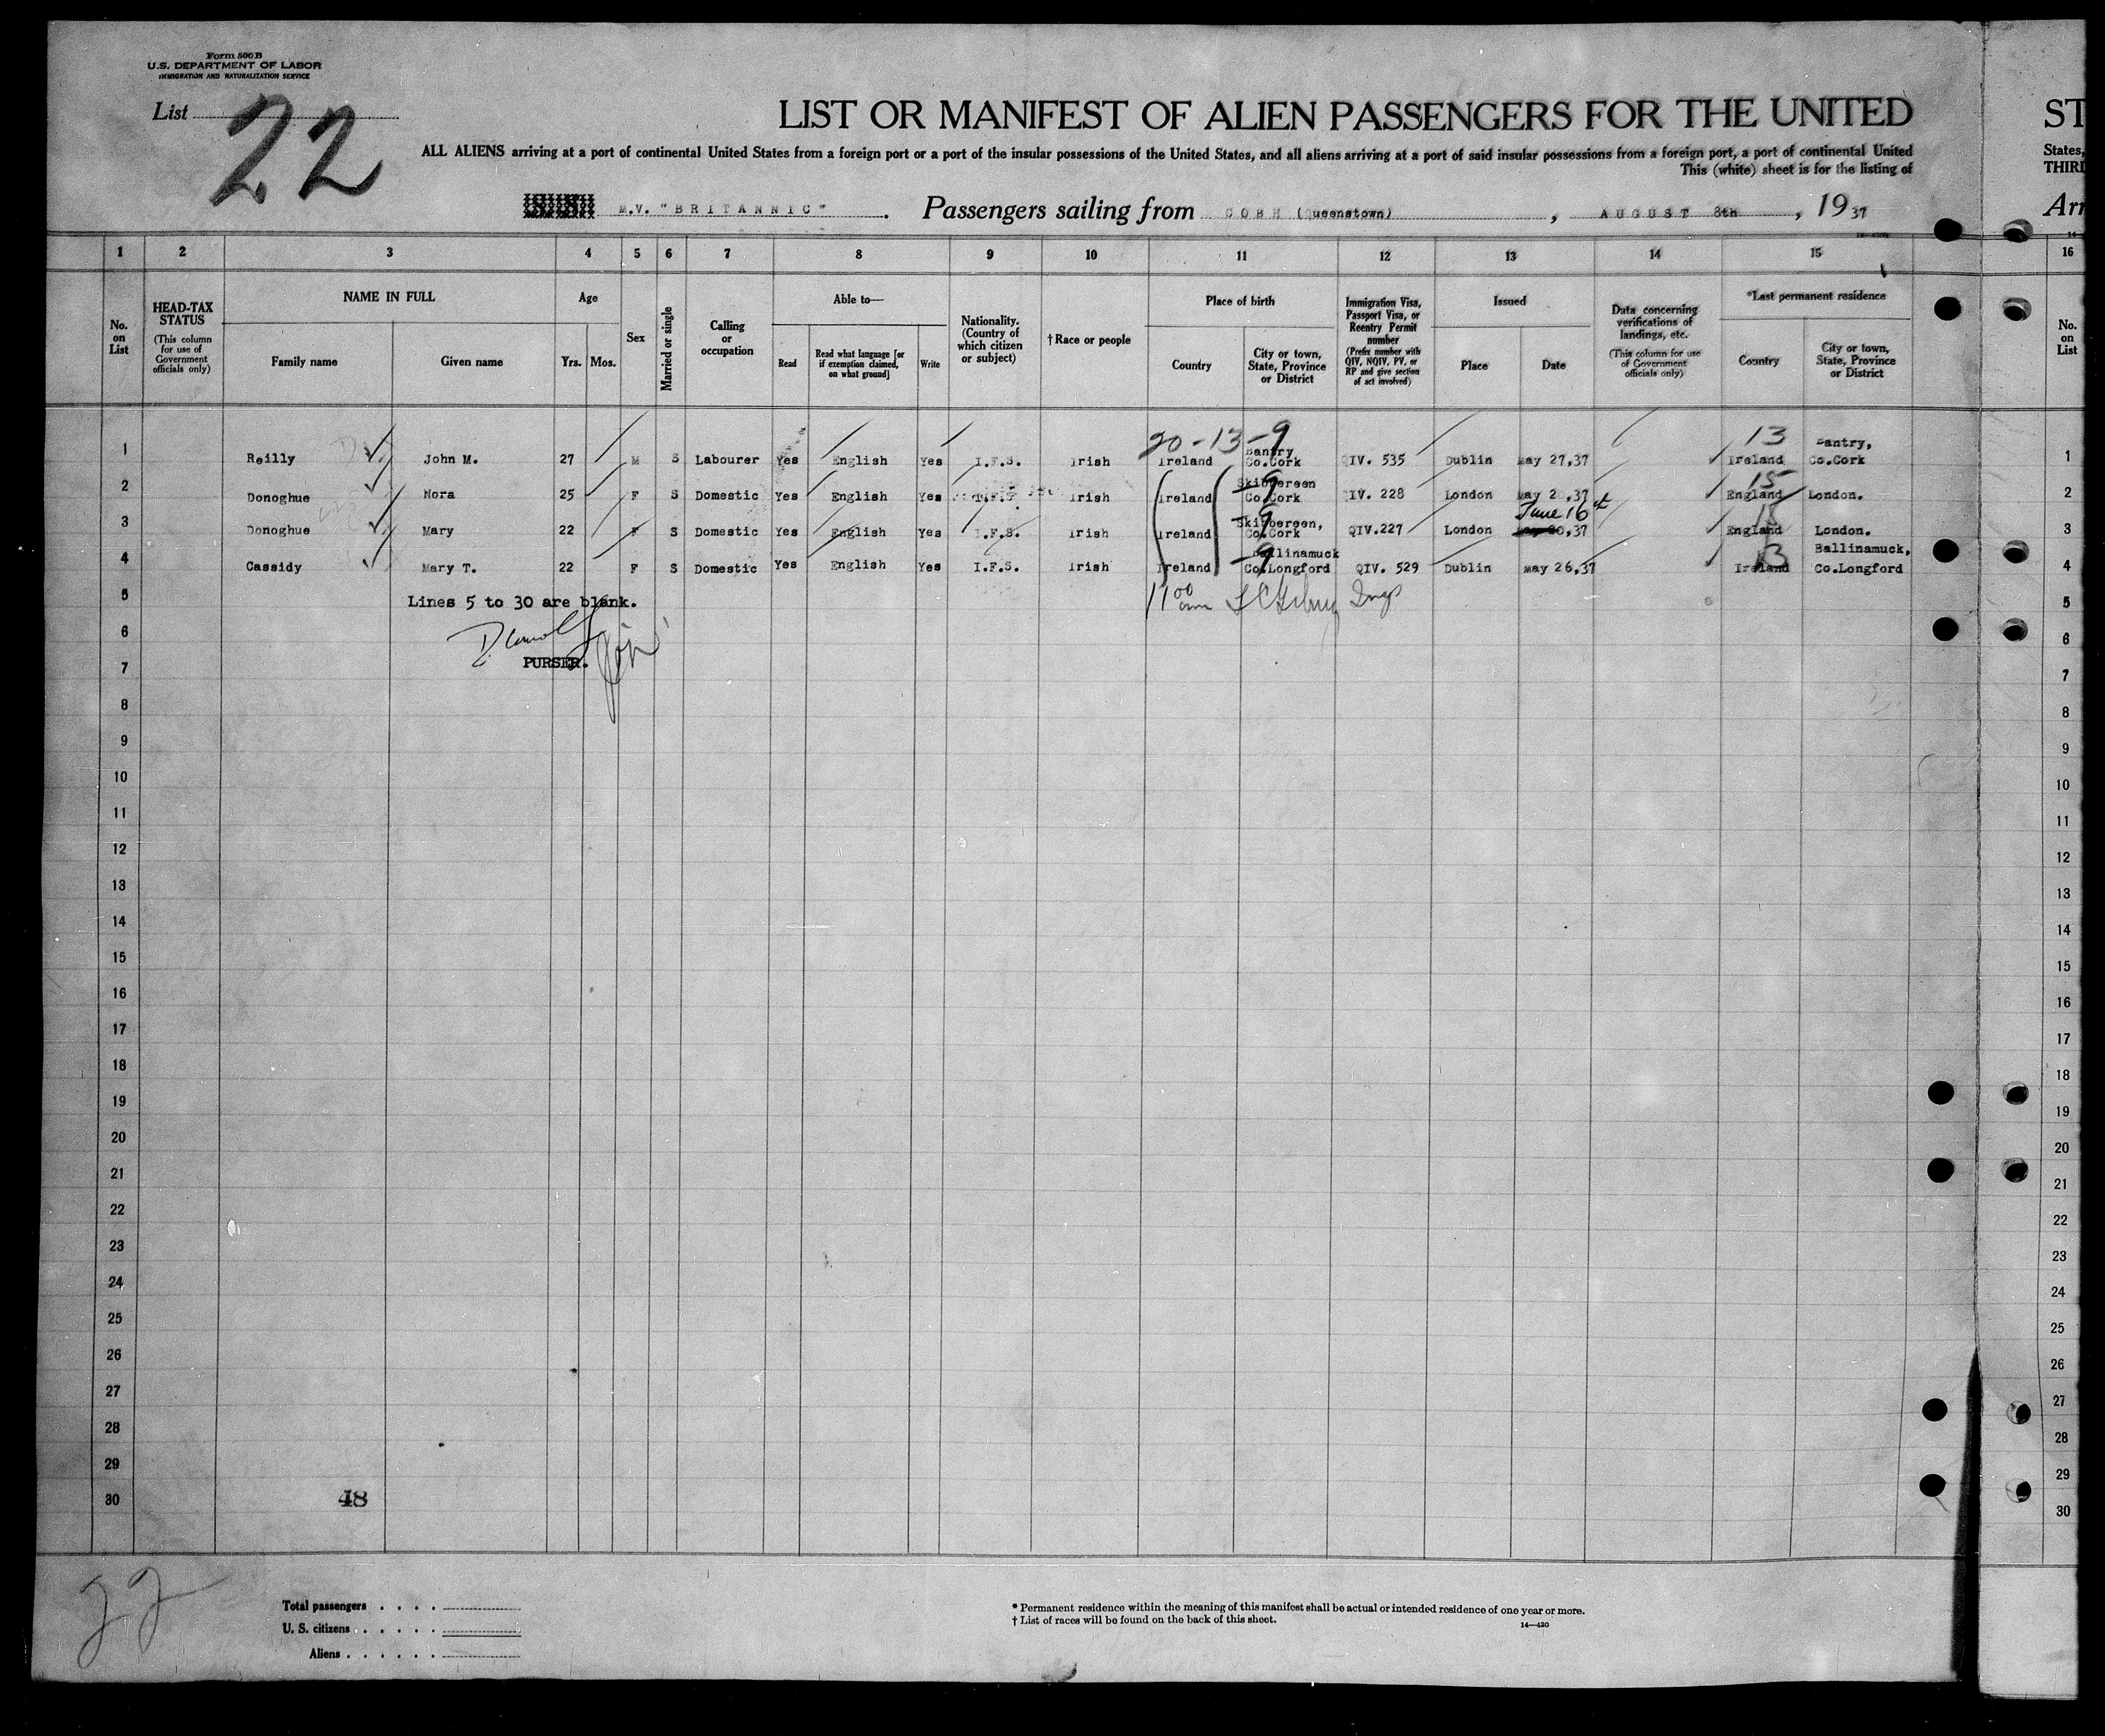 Form 500 B
U.S. DEPARTMENT OF LABOR
IMMIGRATION AND NATURALIZATION SERVICE
List 22
LIST OR MANIFEST OF ALIEN PASSENGERS FOR THE UNITED ST
ALL ALIENS arriving at a port of continental United States from a foreign port or a port of the insular possessions of the United States, and all aliens arriving at a port of said insular possessions from a foreign port, a port of continental United States,
This (white) sheet is for the listing of THIRD
M.V. "BRITANNIC" . Passengers sailing from COBH (Queenstown) , AUGUST 8th , 19 37 Arr
1 2 3 4 5 6 7 8 9 10 11 12 13 14 15 16
No. on List
HEAD-TAX STATUS
(This column for use of Government officials only)
NAME IN FULL
Family name
Given name
Age
Yrs. Mos.
Sex
Married or single
Calling or occupation
Able to—
Read
Read what language [or if exemption claimed, on what ground]
Write
Nationality. (Country of which citizen or subject)
† Race or people
Place of birth
Country
City or town, State, Province or District
Immigration Visa, Passport Visa, or Reentry Permit number
(Prefix number with QIV, NQIV, PV, or RP and give section of act involved)
Issued
Place
Date
Data concerning verifications of landings, etc.
(This column for use of Government officials only)
*Last permanent residence
Country
City or town, State, Province or District
No. on List
20-13-9 13
1 Reilly John M. 27 M S Labourer Yes English Yes I.F.S. Irish Ireland Bantry Co.Cork QIV. 535 Dublin May 27,37 Ireland Bantry, Co.Cork 1
9 15
2 Donoghue Nora 25 F S Domestic Yes English Yes I.F.S Irish Ireland Skibbereen Co.Cork QIV. 228 London May 20,37 England London. 2
9 June 16th 15
3 Donoghue Mary 22 F S Domestic Yes English Yes I.F.S. Irish Ireland Skibbereen, Co.Cork QIV.227 London May 20,37 England London. 3
9 13
4 Cassidy Mary T. 22 F S Domestic Yes English Yes I.F.S. Irish Ireland Ballinamuck Co.Longford QIV. 529 Dublin May 26,37 Ireland Ballinamuck, Co.Longford 4
5 Lines 5 to 30 are blank. 11 00 am Insp 5
6 6
PURSER.
7 7
8 8
9 9
10 10
11 11
12 12
13 13
14 14
15 15
16 16
17 17
18 18
19 19
20 20
21 21
22 22
23 23
24 24
25 25
26 26
27 27
28 28
29 29
30 48 30
22
Total passengers . . . .
U. S. citizens . . . . .
Aliens . . . . . .
* Permanent residence within the meaning of this manifest shall be actual or intended residence of one year or more.
† List of races will be found on the back of this sheet.
14—430